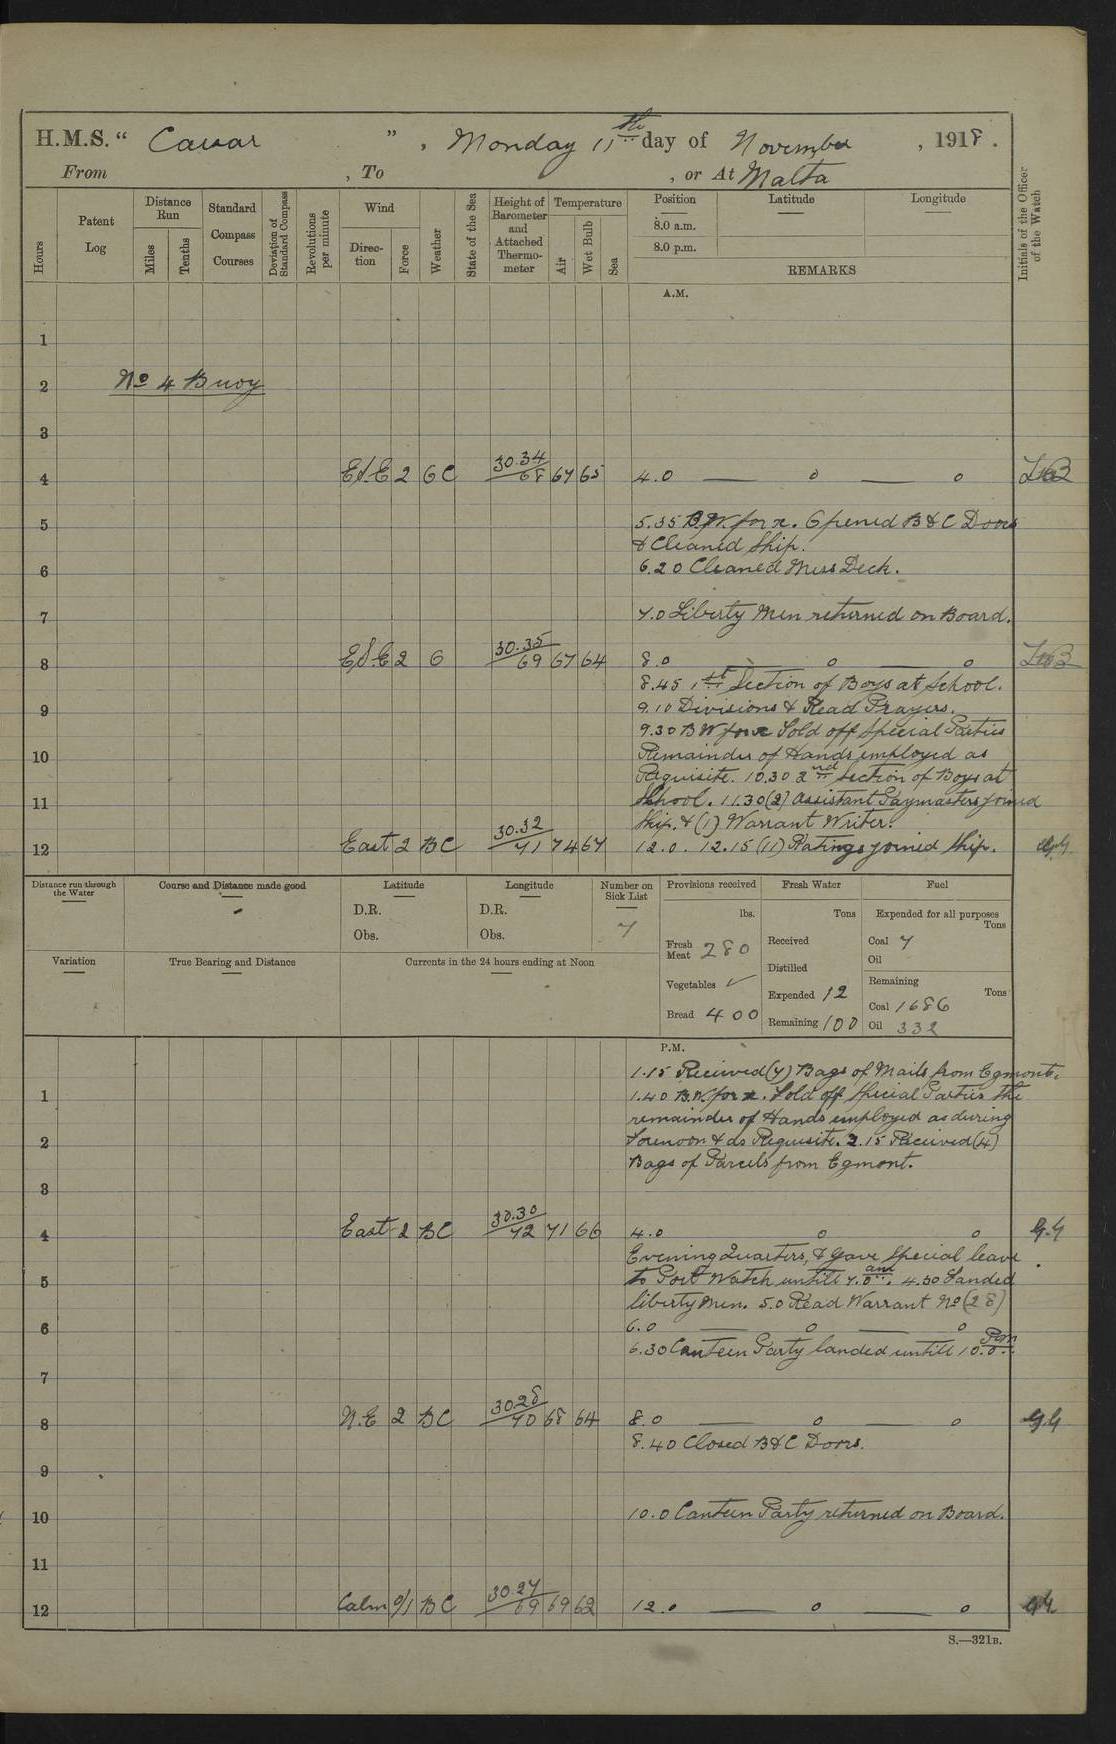 H.M.S. “ Caesar ” , Monday 11th day of November , 1918 .
From , To , or At Malta
Hours
Patent Log
Distance Run
Miles
Tenths
Standard Compass Courses
Deviation of Standard Compass
Revolutions per minute
Wind
Direc-tion
Force
Weather
State of the Sea
Height of Barometer and Attached Thermo-meter
Temperature
Air
Wet Bulb
Sea
Position
Latitude
Longitude
8.0 a.m.
8.0 p.m.
REMARKS
Initials of the Officer of the Watch
A.M.
1
2 No 4 Buoy
3
4 ESE 2 GC 30.34 68 67 65 4.0 — 0 — 0
5 5.35 B.W. for x. Opened B & C Doors
& Cleaned Ship.
6 6.20 Cleaned Mess Deck.
7 7.0 Liberty Men returned on Board.
8 ESE 2 G 30.35 69 67 64 8.0 — 0 — 0
8.45 1st Section of Boys at School.
9 9.10 Divisions & Read Prayers.
9.30 B W for x Told off Special Parties
10 Remainder of Hands employed as
Requisite. 10.30 2nd Section of Boys at
11 School. 11.30 (2) Assistant Paymasters joined
Ship. & (1) Warrant Writer.
12 East 2 BC 30.32 71 74 67 12.0. 12.15 (11) Ratings joined Ship.
Distance run through the Water
Course and Distance made good
Latitude
D.R.
Obs.
Longitude
D.R.
Obs.
Number on Sick List
7
Provisions received
lbs.
Fresh Meat 280
Vegetables ✓
Bread 400
Fresh Water
Tons
Received
Distilled
Expended 12
Remaining 100
Fuel
Expended for all purposes
Tons
Coal 7
Oil
Remaining
Tons
Coal 1686
Oil 332
Variation
True Bearing and Distance
Currents in the 24 hours ending at Noon
P.M.
1.15 Received (7) Bags of Mails from Egmont.
1 1.40 B.W. for x. Told off Special Parties the
remainder of Hands employed as during
2 Forenoon & as Requisite. 2.15 Received (4)
Bags of Parcels from Egmont.
3
4 East 2 BC 30.30 72 71 66 4.0 0 0 G.G
Evening Quarters, & gave special leave
5 to Port Watch untill 7.0 am. 4.30 Landed
liberty men. 5.0 Read Warrant No (28)
6 6.0 — 0 — 0
6.30 Canteen Party landed untill 10.0 Pm.
7
8 N.E 2 BC 30.28 70 68 64 8.0 — 0 — 0 G.G
8.40 Closed B & C Doors.
9
10 10.0 Canteen Party returned on Board.
11
12 Calm 0/1 BC 30.27 69 69 62 12.0 — 0 — 0 G.G.
S.—321B.